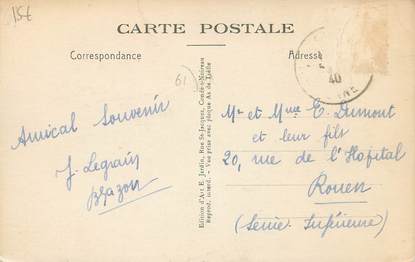 15€
CARTE POSTALE
Correspondance
Adresse
61
40
Amical Souvenir
J. Legrain
Brazon
Edition d'Art E. Jardin, Rue St-Jacques, Condé-s-Noireau
Reprod. interd. - Vue prise avec plaque As de Trèfle
Mr et Mme E. Dumont
et leur fils
20, rue de l'Hopital
Rouen
(Seine Inférieure)